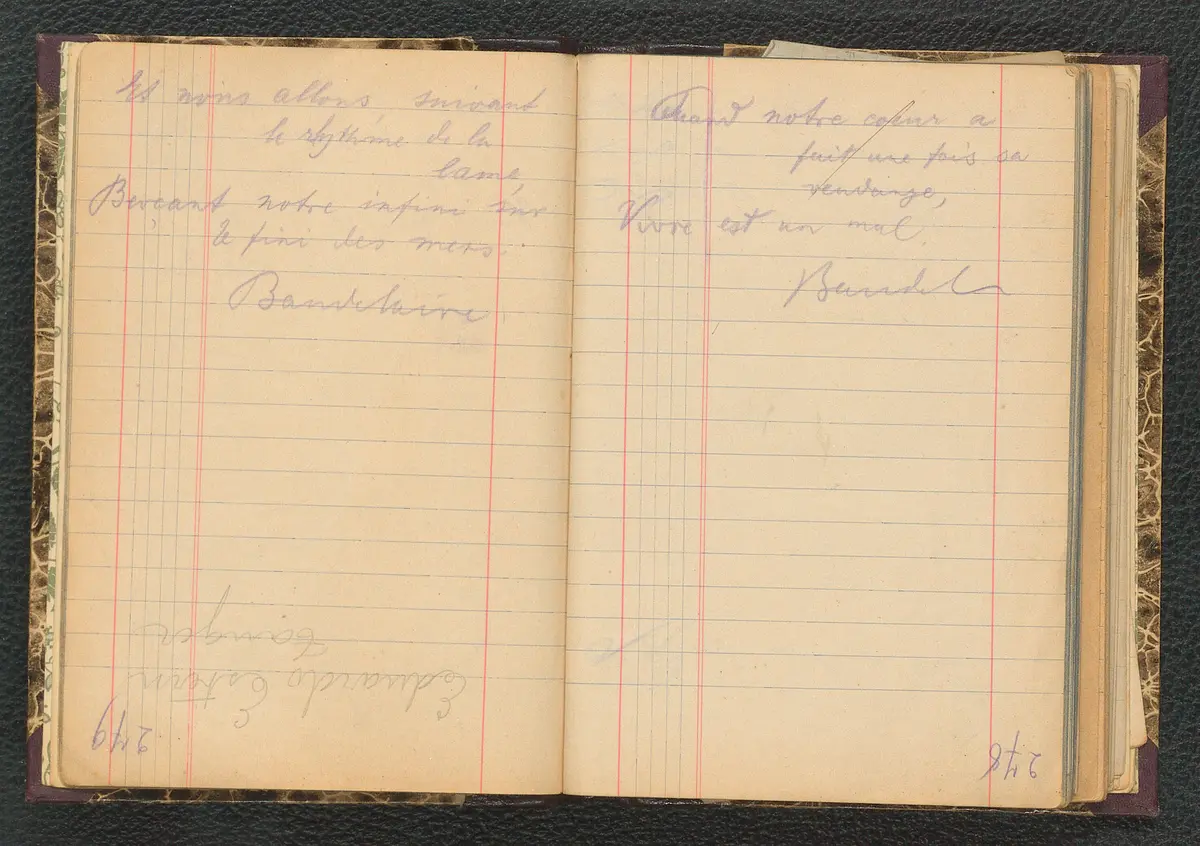 Et nous allons, suivant
le rhythme de la
lame,
Berçant notre infini sur
le fini des mers.
Baudelaire
Eduardo Estorin
Tanger
279
Quand notre cœur a
fait une fois sa
vendange,
Vivre est un mal.
Baudel
278